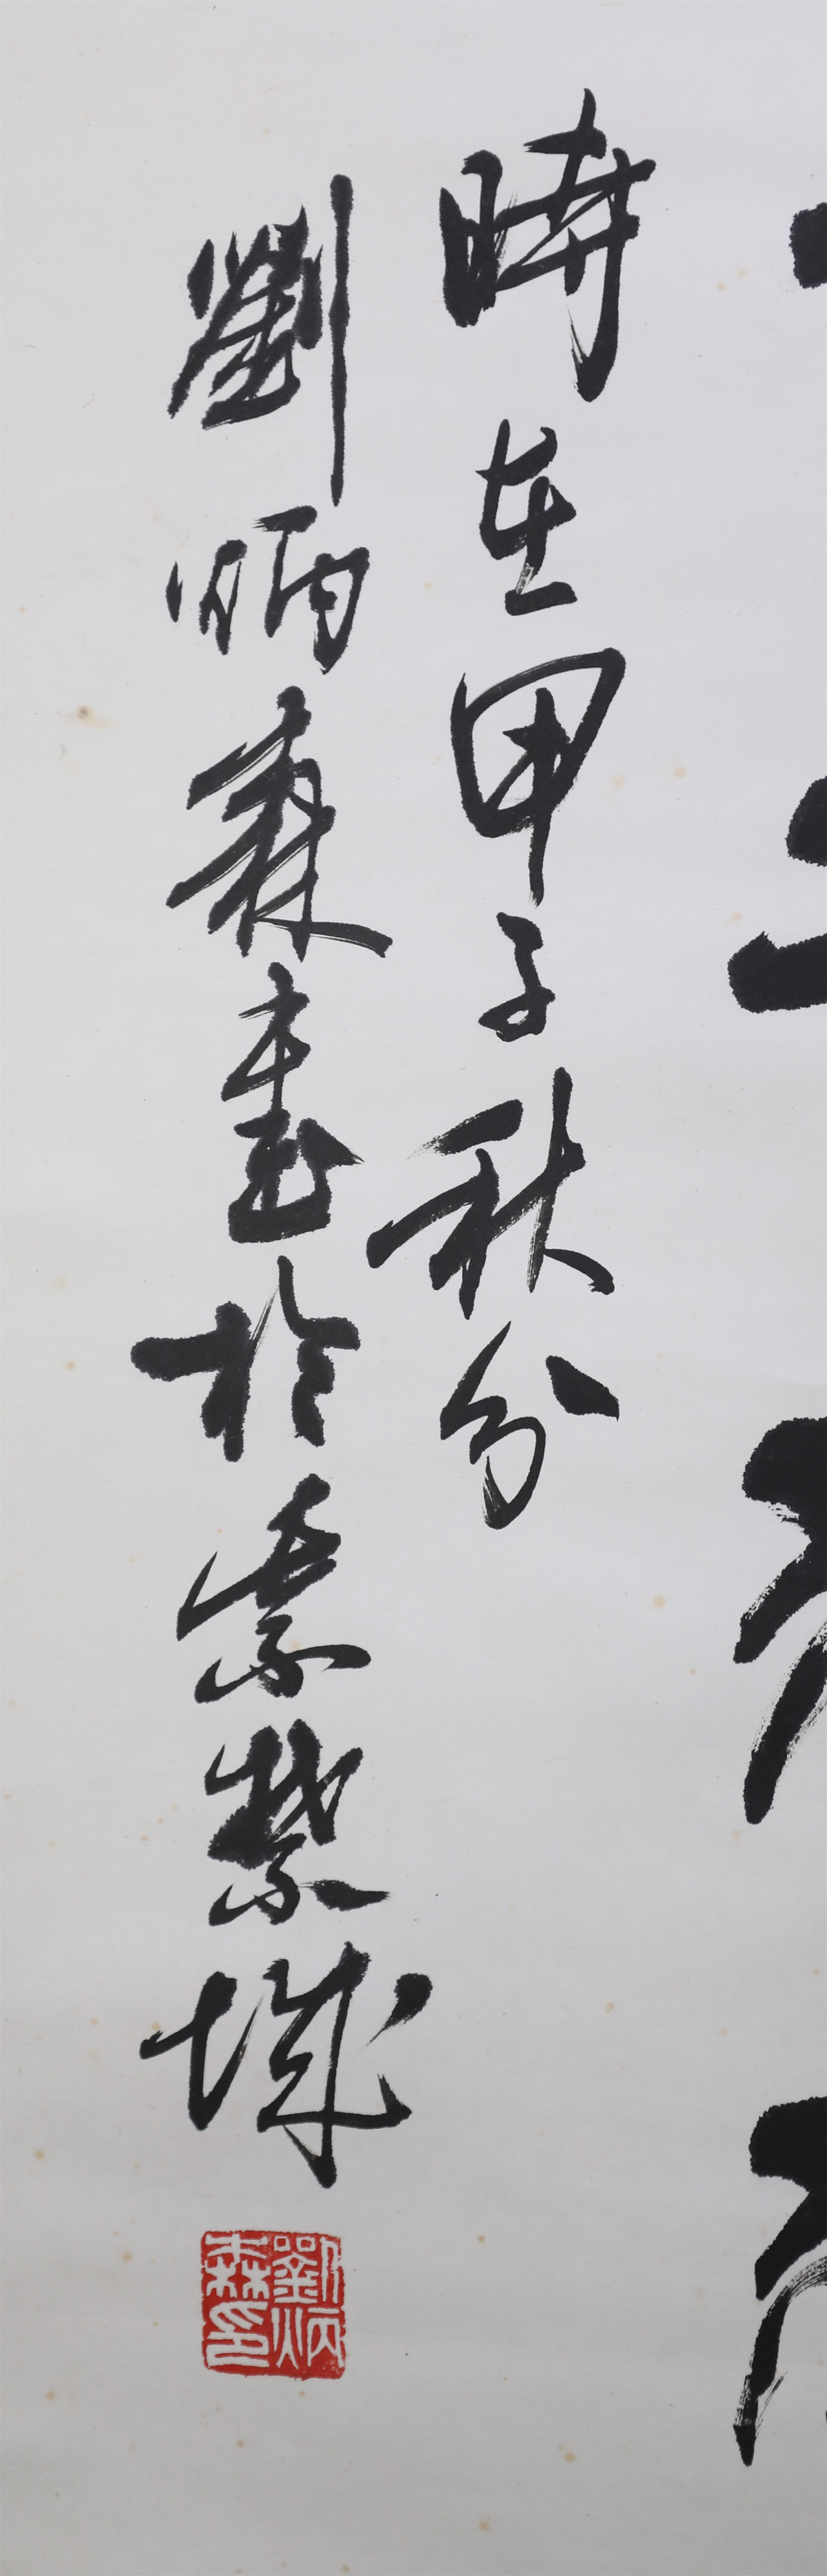 時在甲子秋分
劉炳森書於紫禁城
劉炳
森印